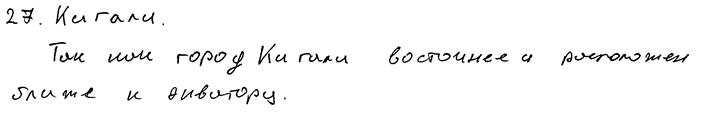 27. Кигали.
Так как город Кигали восточнее и расположен
ближе к экватору.